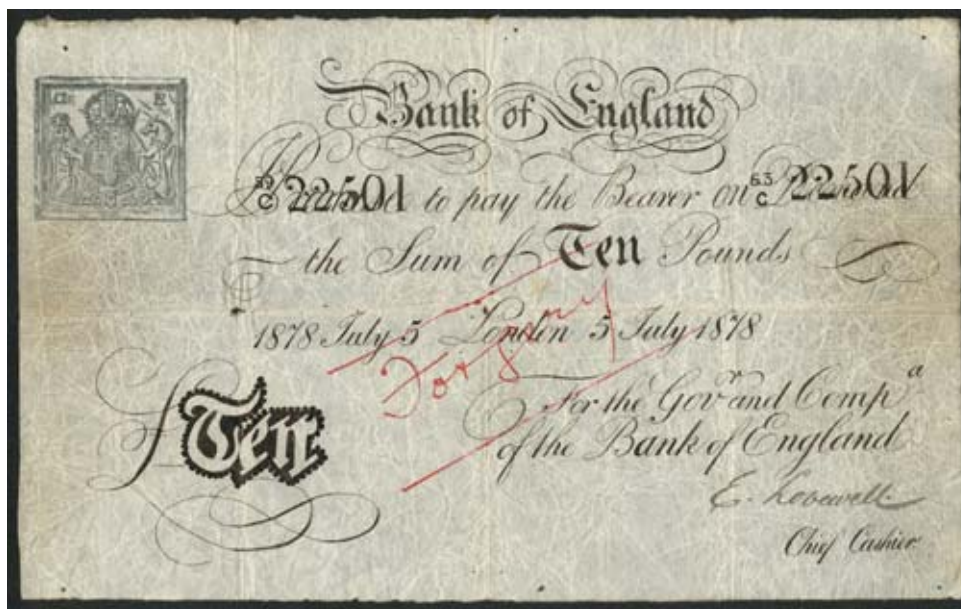 Bank of England
63/C 22501 to pay the Bearer on 63/C 22501
the Sum of Ten Pounds
1878 July 5 London 5 July 1878
Forgery
For the Govr and Compa
of the Bank of England
£Ten
E. Lovewell
Chief Cashier